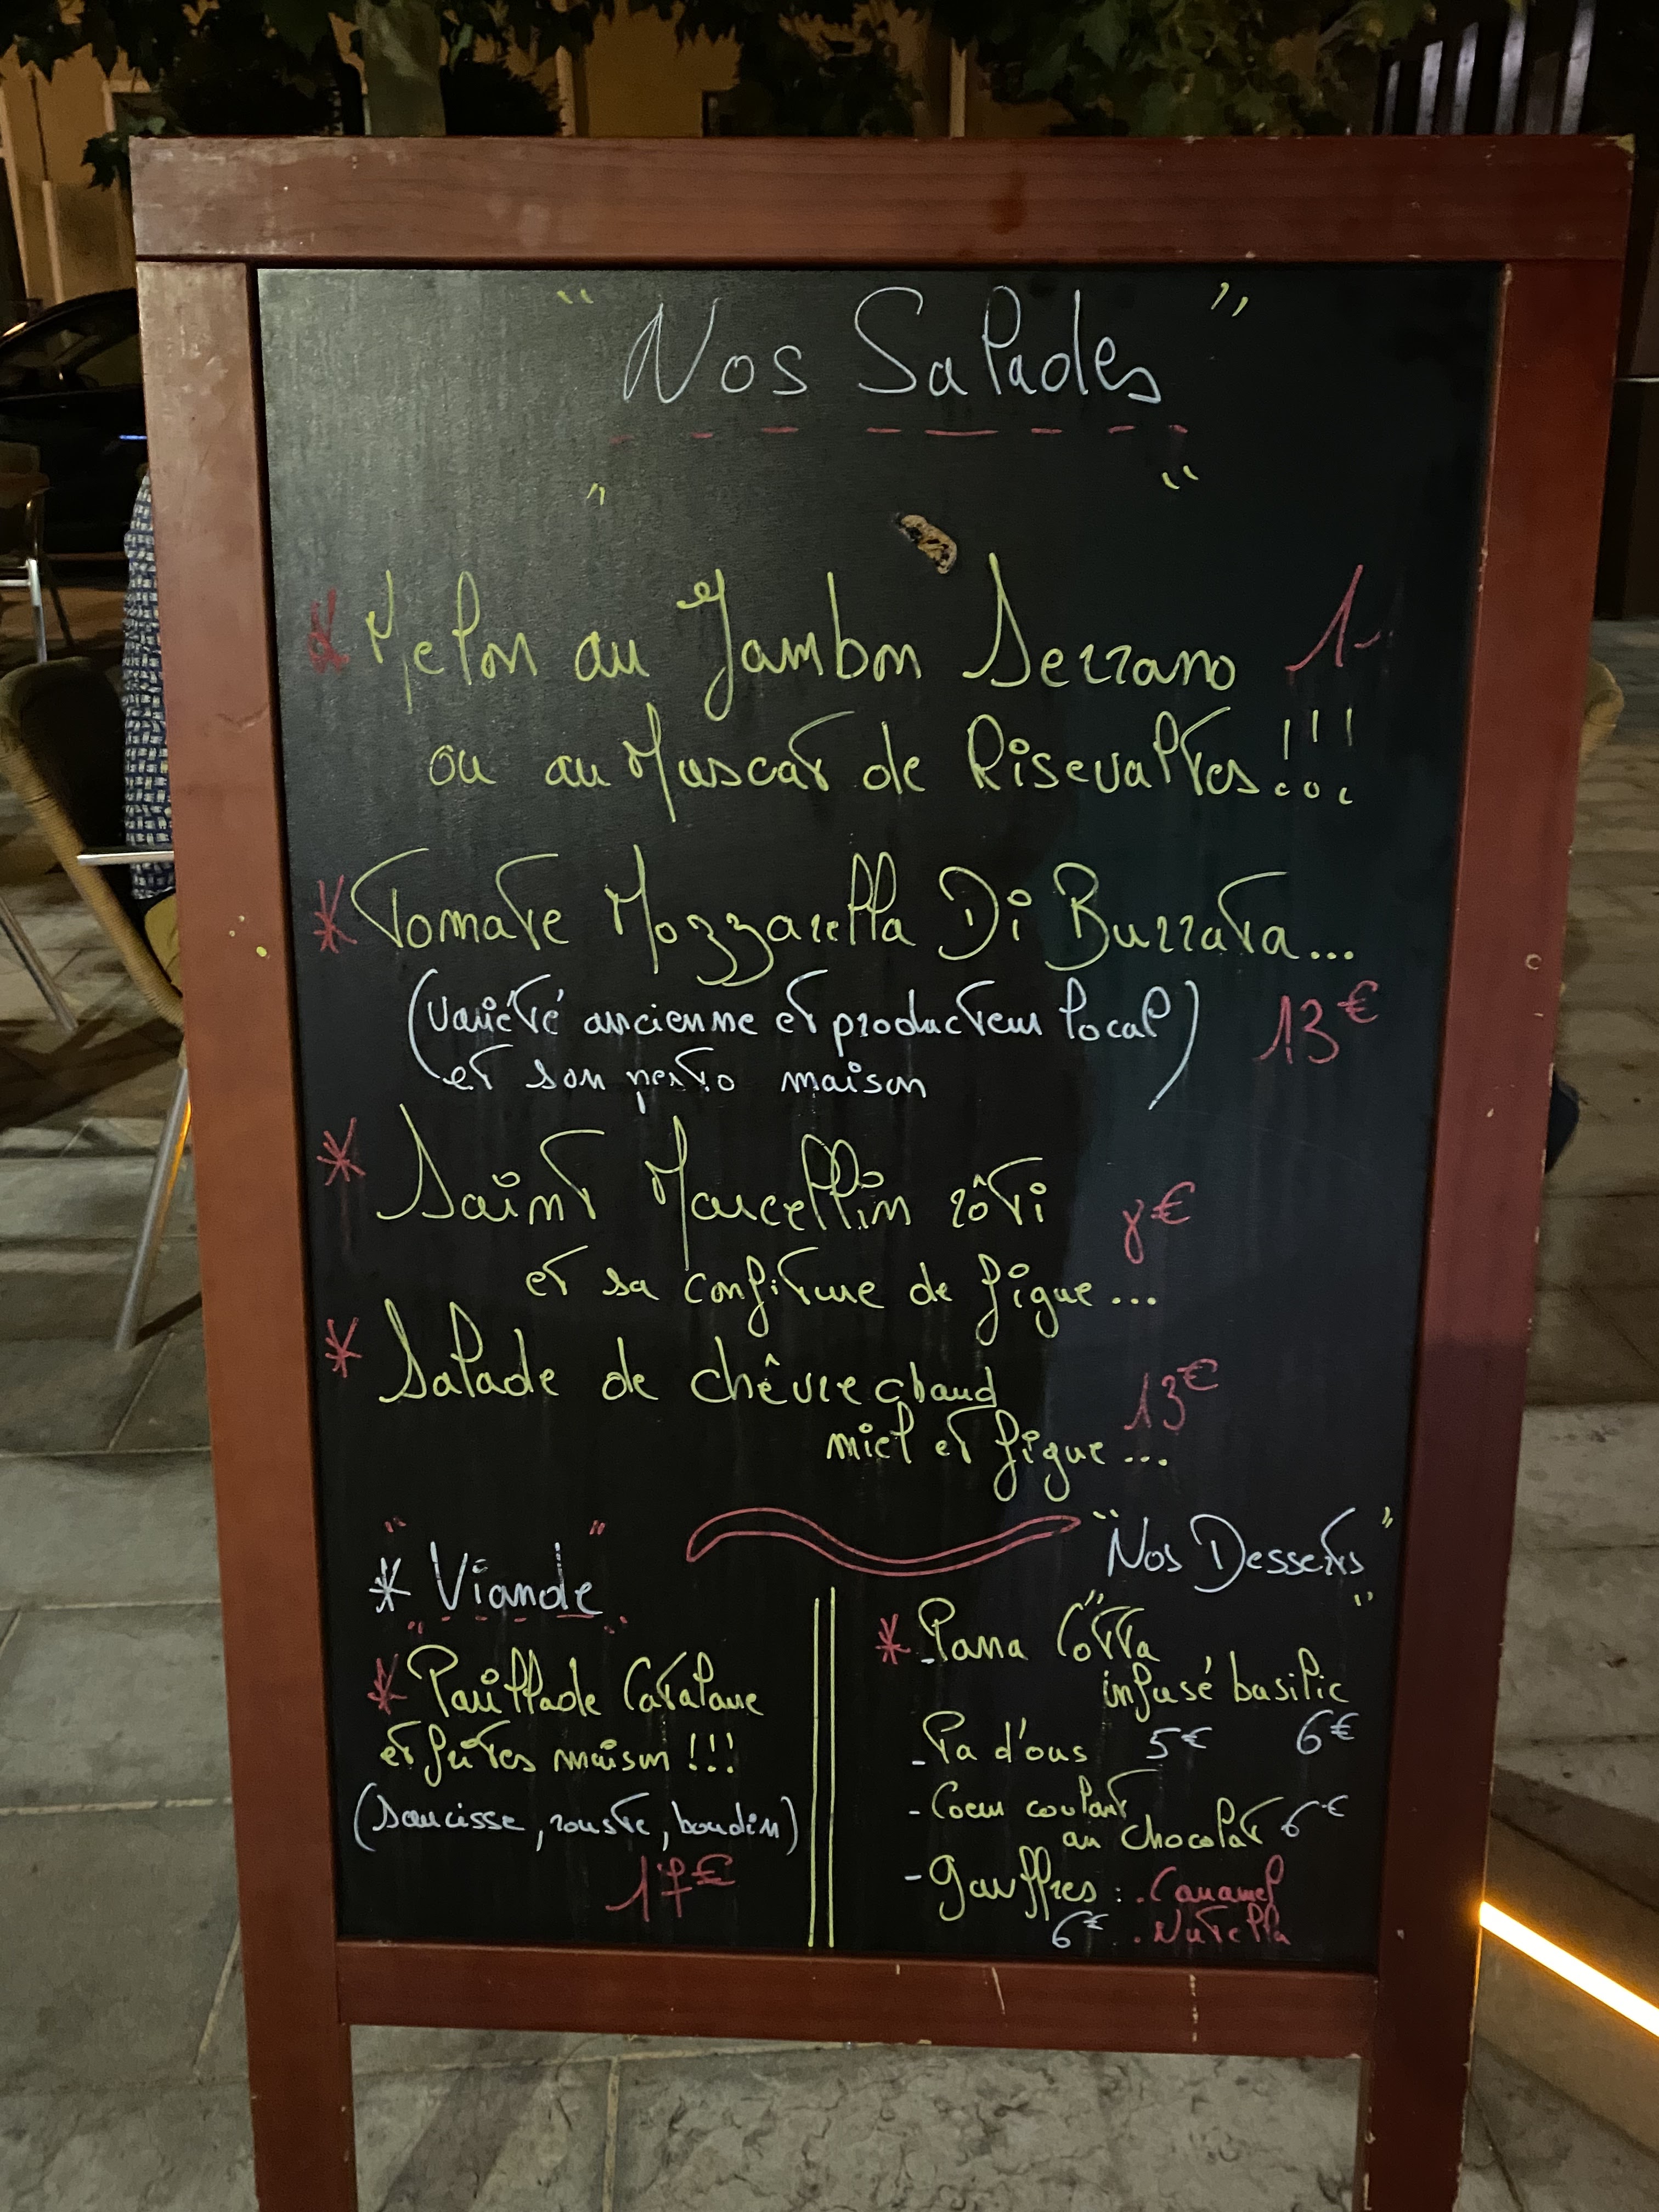 " Nos Salades "
* Melon au Jambon Serrano 1-
ou au Muscat de Risevaltes!!!
* Tomate Mozzarella Di Burrata...
(variété ancienne et producteur local) 13€
et son pesto maison
* Saint Marcellin rôti 8€
et sa confiture de figue...
* Salade de chêvre chaud 13€
miel et figue...
* "Viande"
* Paillade Catalane
et frites maison !!!
(saucisse, rouste, boudin)
17€
"Nos Desserts"
* - Pana Cotta
infusé basilic
6€
- Pa d'ous 5€
- Coeur coulant
au chocolat 6€
- Gauffres : . Caramel
6€ . Nutella